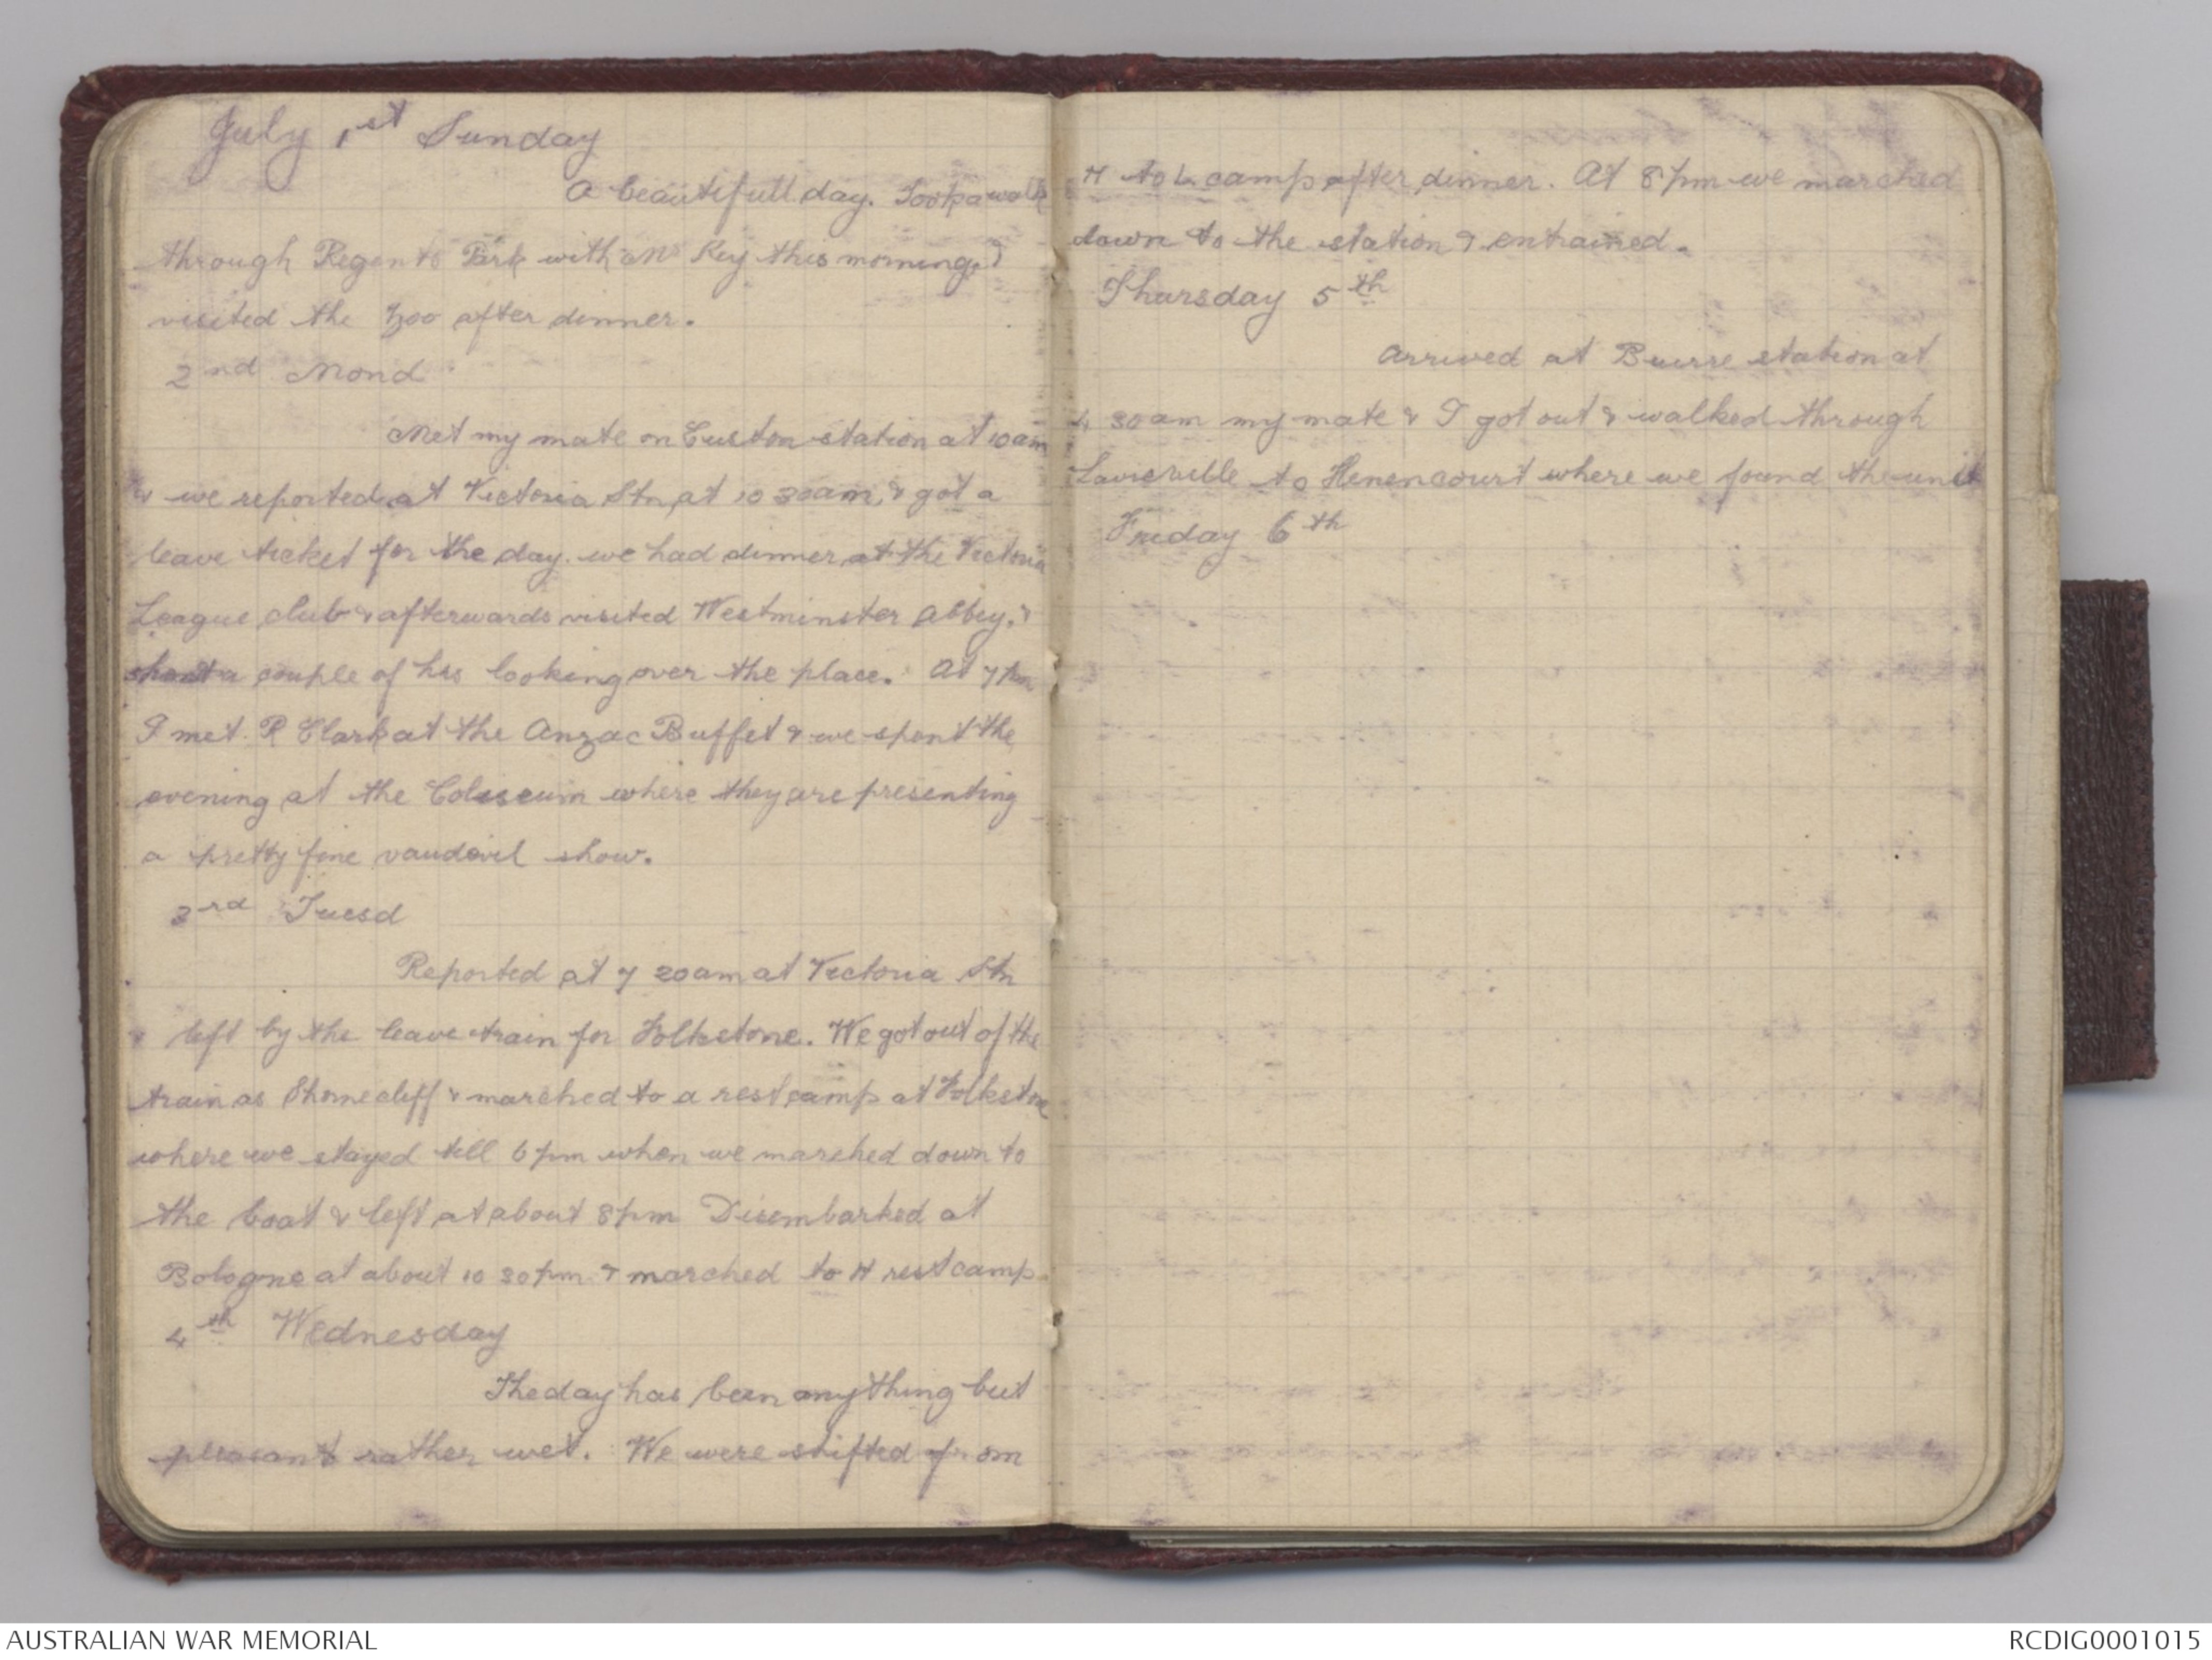 July 1st Sunday
A beautifull day. Took a walk
through Regents Park with Mr Key this morning, &
visited the Zoo after dinner.
2nd Mond
Met my mate on Euston station at 10 am
& we reported at Victoria Stn, at 10 30am, & got a
leave ticket for the day. we had dinner at the Victoria
League club & afterwards visited Westminster Abbey, &
a couple of hrs looking over the place. At 7 pm
I met R Clark at the Anzac Buffet & we spent the
evening at the Coliseum where they are presenting
a pretty fine vaudevil show.
3rd Tuesd
Reported at 7 20am at Victoria Stn
& left by the leave train for Folkstone. We got out of the
train as Shornecliff & marched to a rest camp at Folkstone
where we stayed till 6 pm when we marched down to
the boat & left at about 8 pm Disembarked at
Bologne at about 10 30 pm & marched to H rest camp
4th Wednesday
The day has been anything but
pleasant rather wet. We were shifted from
H to L camp after dinner. At 8 pm we marched
down to the station & entrained.
Thursday 5th
Arrived at Buirre station at
4 30am my mate & I got out & walked through
Lavieville to Henencourt where we found the unit
Friday 6th
AUSTRALIAN WAR MEMORIAL
RCDIG0001015